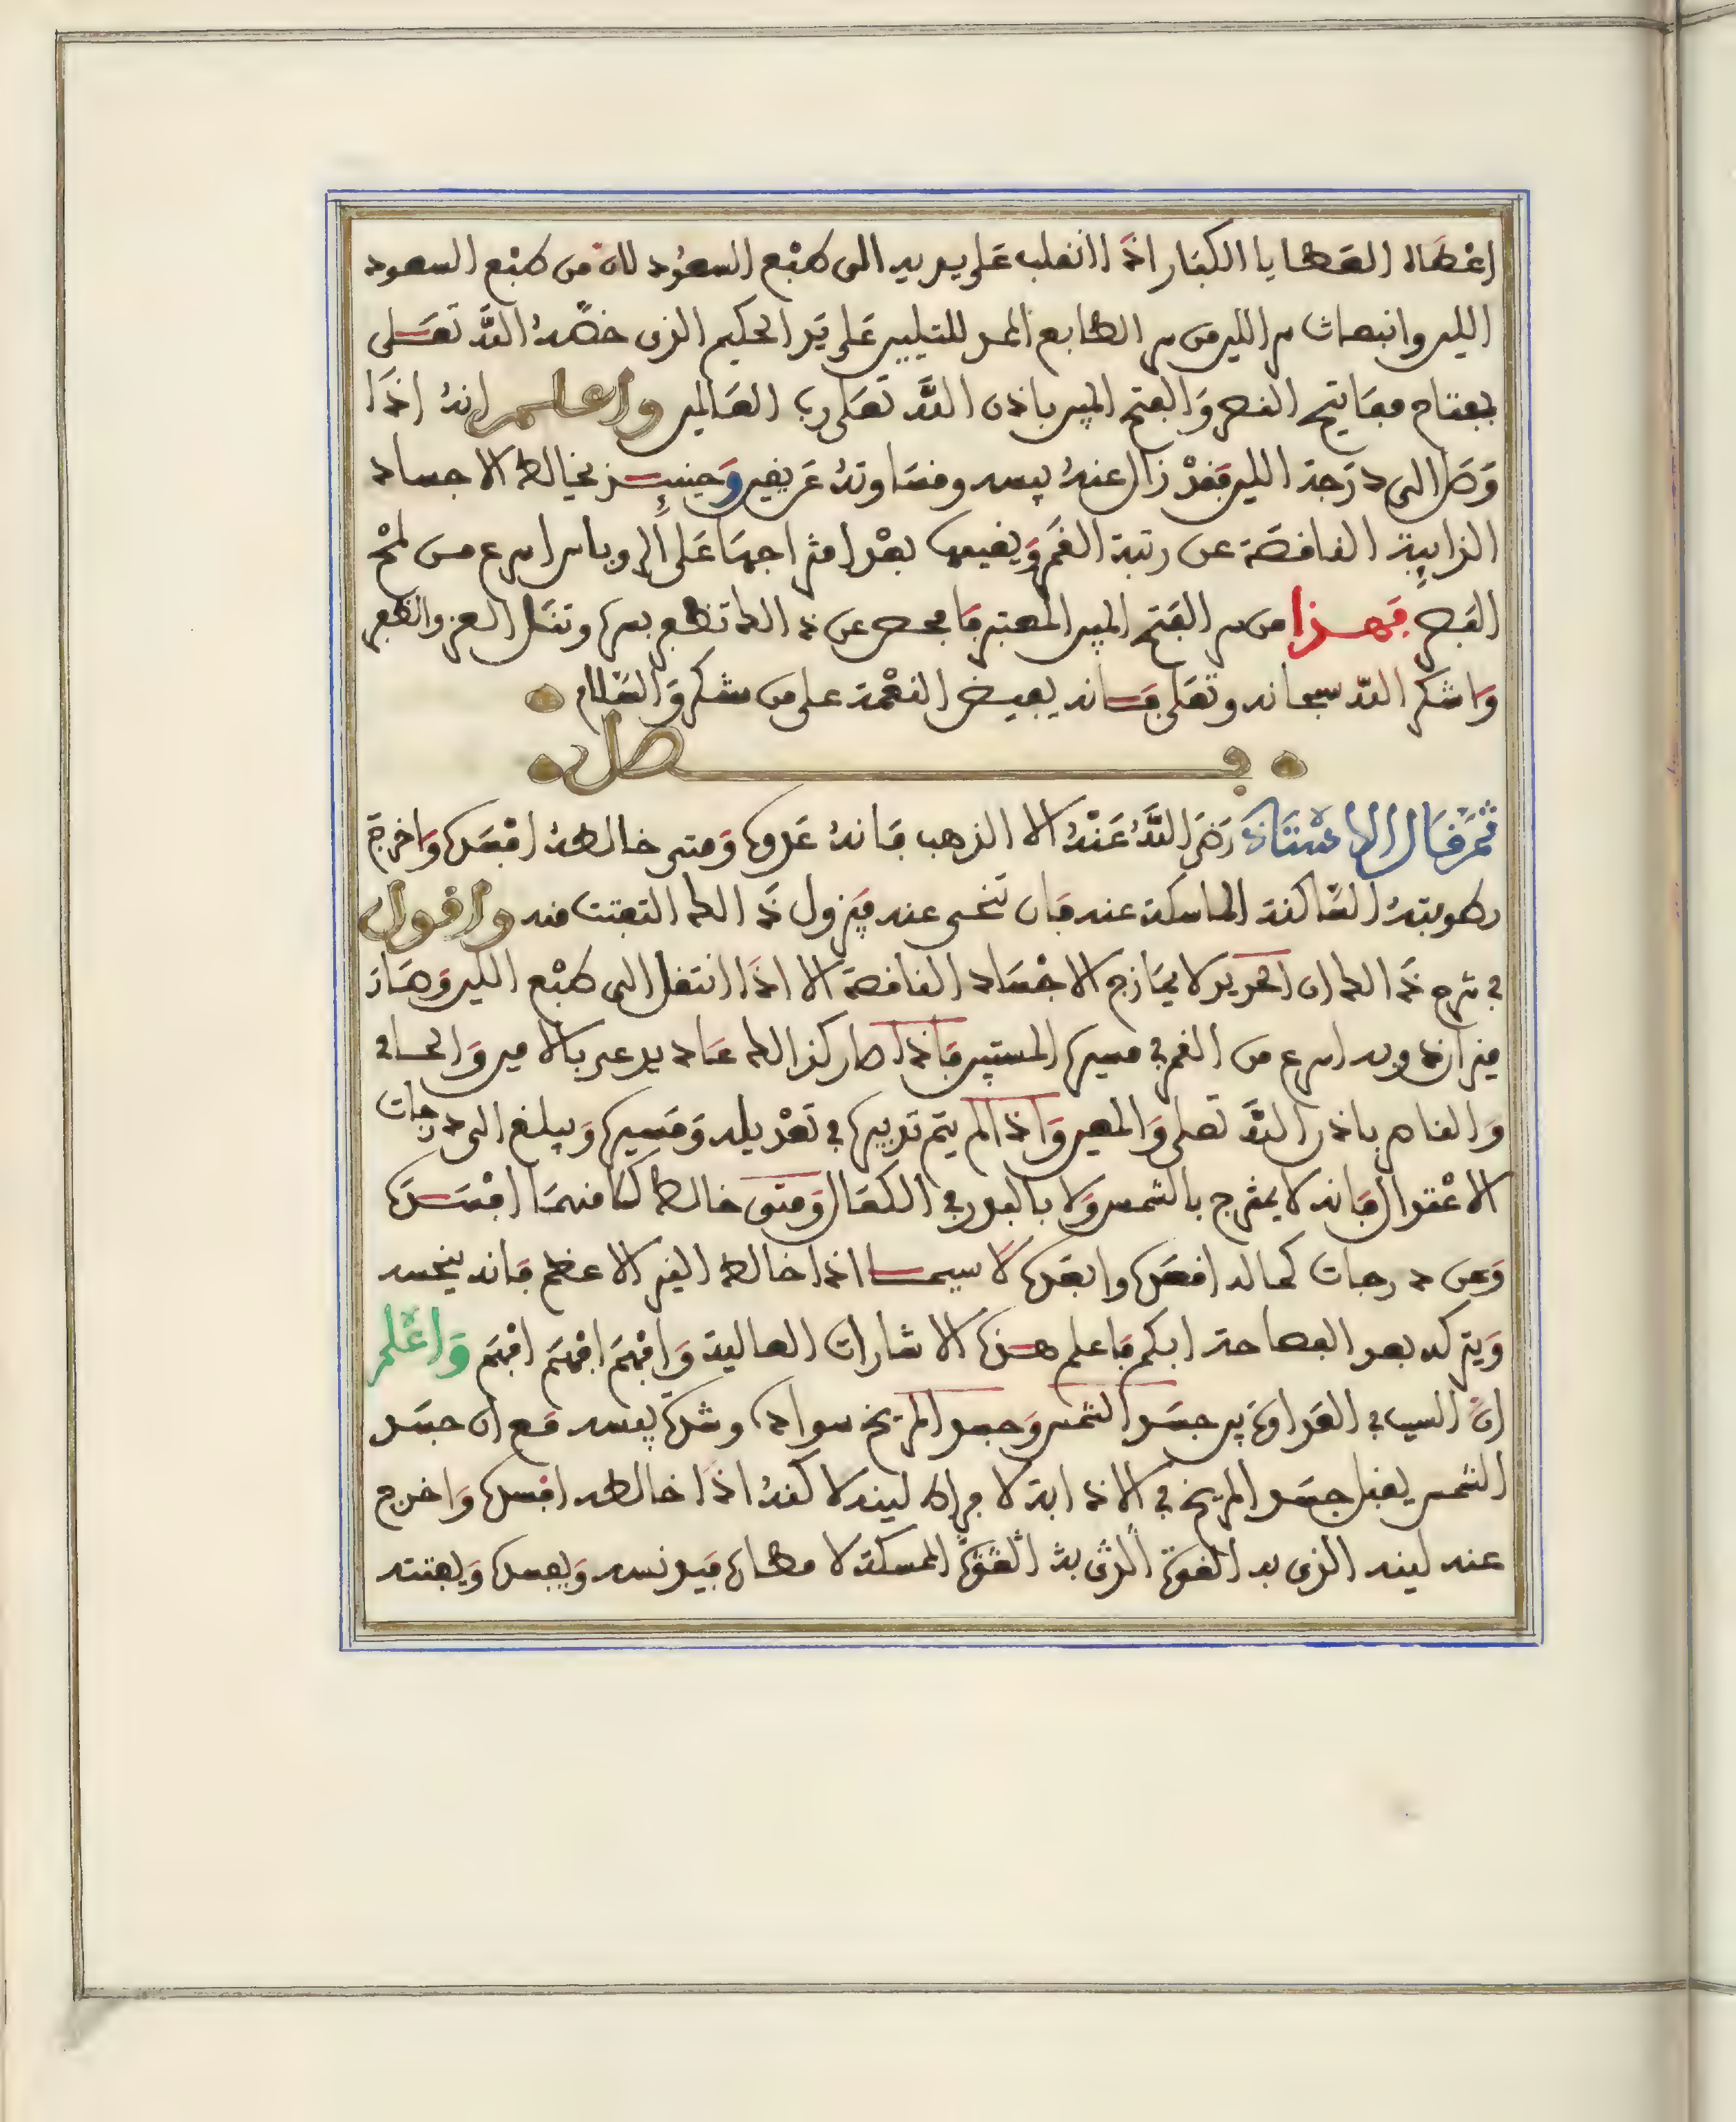 اعْطاه العطايا الكبار اذا انقلب على يديه الى طبْع السعُود لانه من طبْع السعود
اللين وانبعاث سر اللين من سر الطابع المعد للتليين على يد الحكيم الذي خصّه اللّه تعلى
بمفتاح مفاتيح النصر والفتح المبين باذن اللّه تعلى رب العالمين واعلم انه اذا
وصل الى درجة اللين فقدْ زال عنه يبسه وقساوته عن يقين وحينئذ يخالط الاجساد
الذايبة الناقصة عن رتبة القمر ويقيمها بعْد امتزاجها على الروباس اسرع من لمْح
البصر فهذا من سر الفتح المبين المعتبر فافحص عن ذالك تظفر بسره وتنل العز والظفر
واشكر اللّه سبحانه وتعلى فانه يفيض النعْمة على من شكر والسّلام
فصل
ثم قال الاستاذ رضي اللّهُ عنْهُ الا الذهب فانه عدوه ومتى خالطهُ افسده واخرج
رطوبتهُ الساكنة الماسكة عنه فان تنحى عنه فيزول ذالك التفتت منه واقول
في شرح ذالك ان الحديد لا يمازج الاجْساد الناقصة الا اذا انتقل الى طبْع اللين وصار
ميزان ذوبه اسرع من القمر في مسيره المستبين فاذا صار كذالك عاد يدعى بالامين والحافي
والناصر باذن اللّه تعلى والمعين واذا لم يتم تدبيره في تعْديله ومسيره ويبلغ الى درجات
الاعْتدال فانه لا يمتزج بالشمس ولا بالبدر في الكمال ومتى خالط كلا منهما افسده
وعن درجات كماله اقعده وابعده لا سيما اذا خالط النير الاعظم فانه ينحسه
ويتركه بعد الفصاحة ابكم فاعلم هذه الاشارات العالية وافْهم افْهم افْهم واعْلم
ان السبب في العداوة بين جسد الشمس وجسد المريخ سواده وشدّة يبسه مع ان جسد
الشمس يقبل جسد المريخ في الاذابة لا فراط لينه لاكنهُ اذا خالطه افسده واخرج
عنه لينه الذي به القوة الّذي بهْ القوّة الممسكة لا مطان فيدنسه ويفسده ويفتته